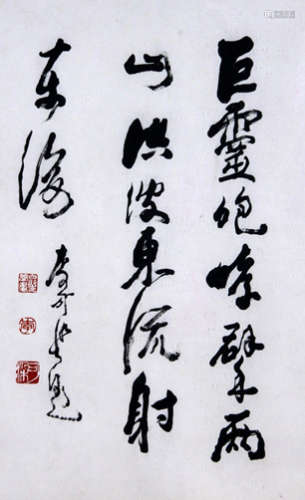 巨靈咆哮擘兩
山洪波東流射
東海
李可染題